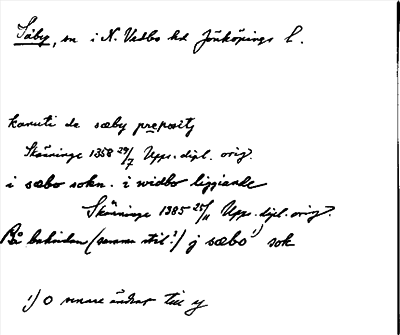 Säby, sn i N. Vedbo hd Jönköpings l.
kanuti de sæby prepositj
Skänninge 1358 29/7 Upps. dipl. orig.
i sæbo sokn. i widbo liggiande
Skänninge 1385 25/11 Upps. dipl. orig.
På baksidan (samma stil?) j sæbo 1) sok
1) o senare ändrat till y